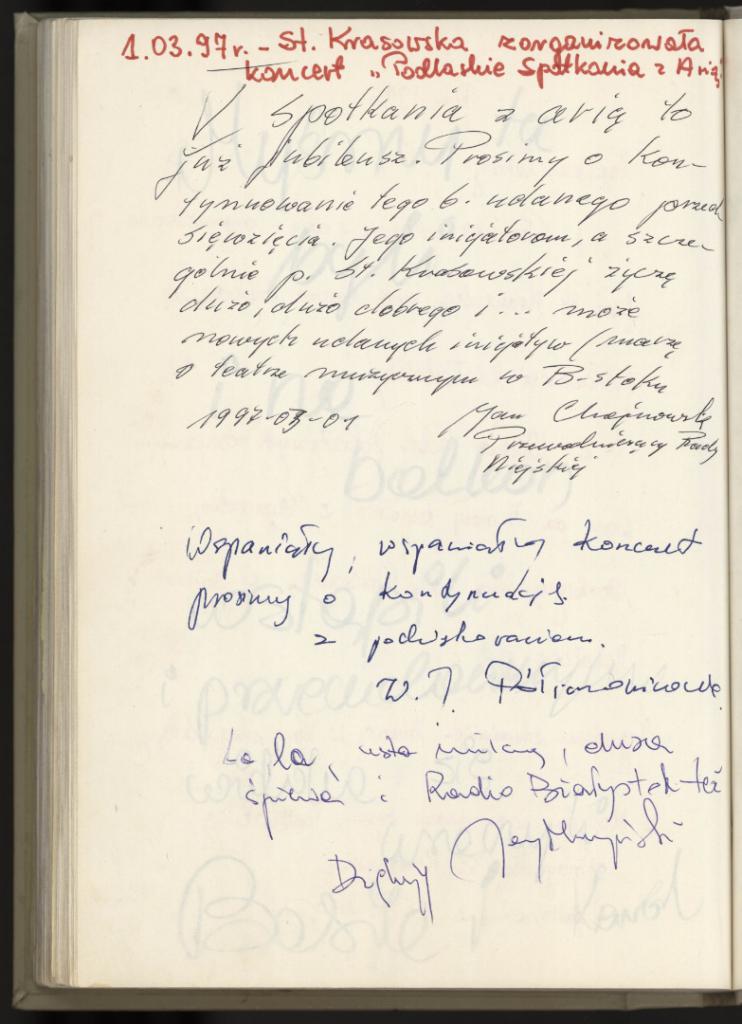 1.03.97r. - St. Krasowska zorganizowała
koncert "Podlaskie Spotkania z Arią"
V spotkania z arią to
już jubileusz. Prosimy o kon-
tynuowanie tego b. udanego przed
sięwzięcia. Jego inicjatorom, a szcze-
gólnie p. St. Krasowskiej życzę
dużo, dużo dobrego i... może
nowych udanych inicjatyw (marzę
o teatrze muzycznym w B-stoku
1997-03-01 Jan Chojnowski
Przewodniczący Rady
Miejskiej
Wspaniały, wspaniały koncert
prosimy o kontynuację.
z podziękowaniem.
W. J.
La la, usta milczą, dusza
śpiewa i Radio Białystok też
Dziękuję